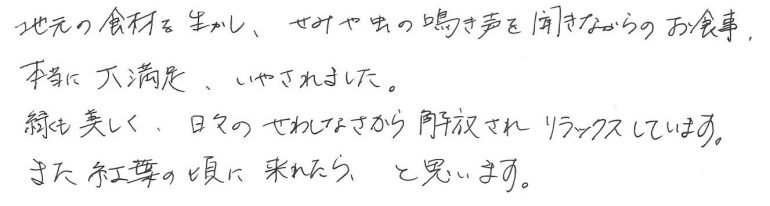 地元の食材を生かし、せみや虫の鳴き声を聞きながらのお食事、
本当に大満足、いやされました。
緑も美しく、日々のせわしなさから解放されリラックスしています。
また紅葉の頃に来れたら、と思います。